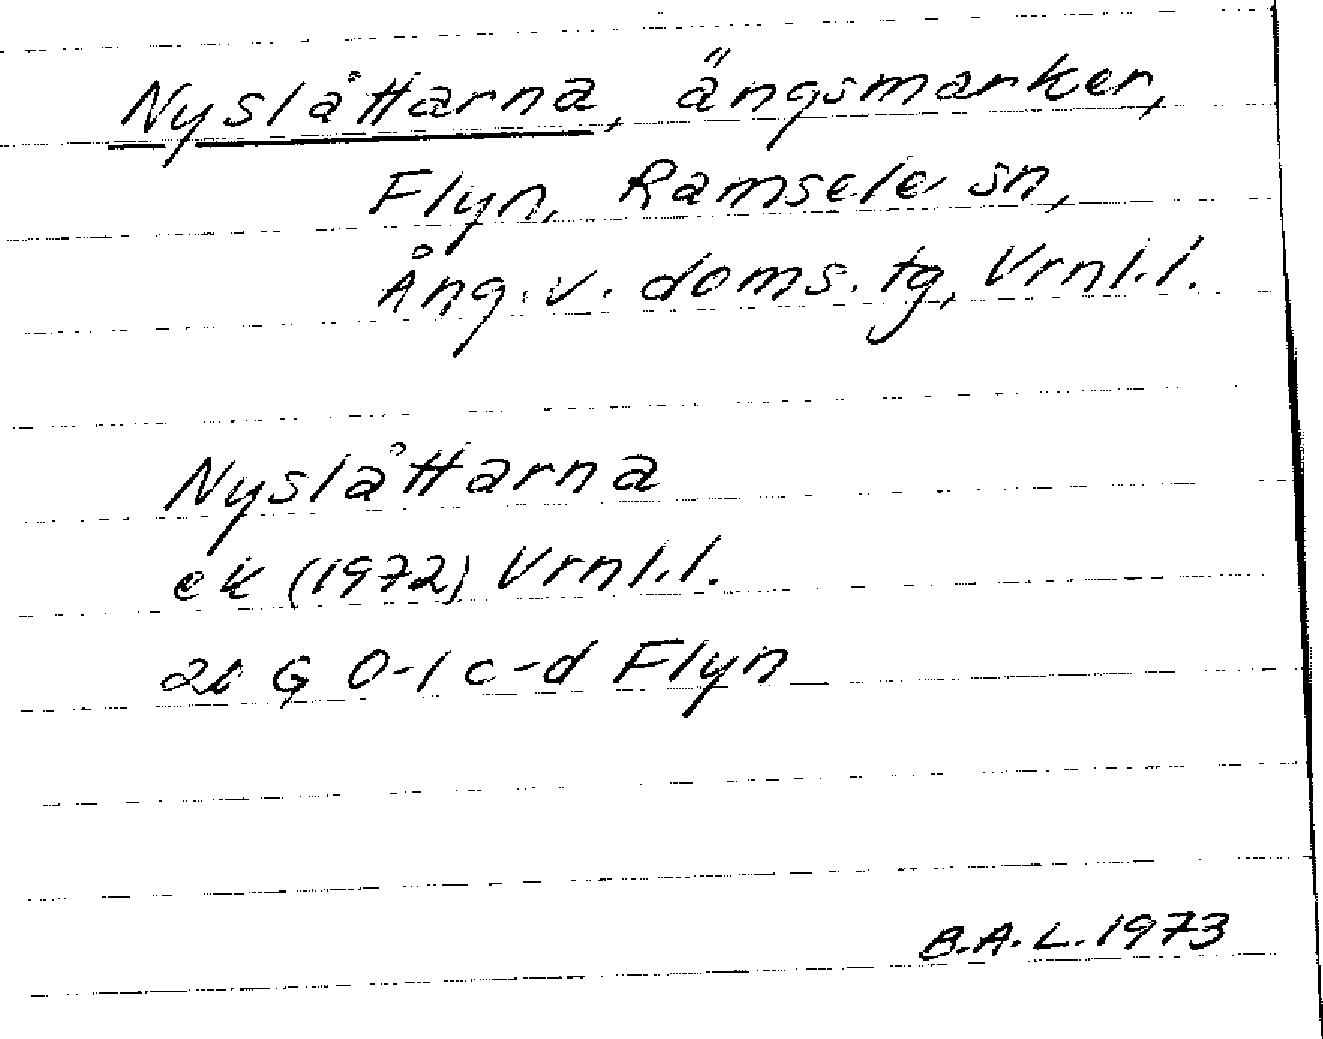 Nyslåttarna, ängsmarker,
Flyn, Ramsele sn,
Ång. v. doms. tg, Vrnl.l.
Nyslåttarna
ek (1972) Vrnl.l.
20 G 0-1 c-d Flyn
B.A.L. 1973